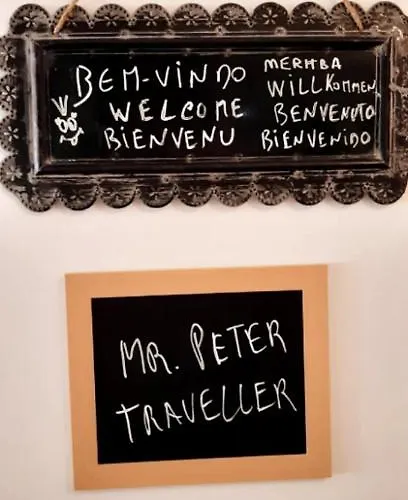 BEM-VINDO
WELCOME
BIENVENU
MERHBA
WILLKOMMEN
BENVENUTO
BIENVENIDO
MR. PETER
TRAVELLER